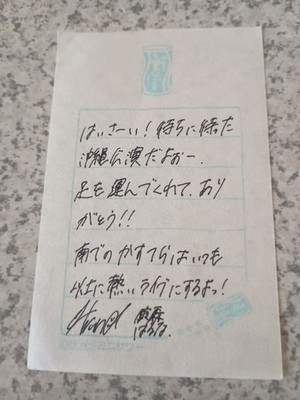 はいさーい！待ちに待った
沖縄公演だよおー。
足を運んでくれて、あり
がとう！！
南でのかすてらはいつも
以上に熱いライブにするよっ！